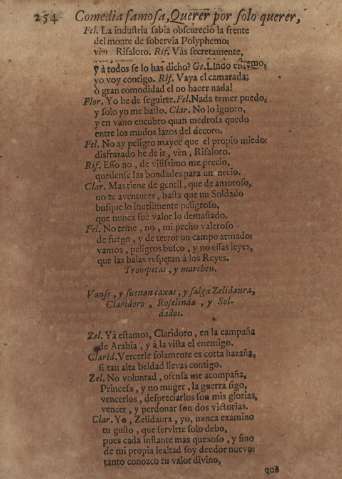 254 Comedia famosa, Querer por solo querer,
Fel. La industria sabia obscurecio la frente
del monte de sobervia Polyphemo;
vèn Risaloro. Rif. Vas secretamente,
y à todos se lo has dicho? Ge. Lindo estremo,
yo voy contigo. Rif. Vaya el camarada;
ò gran comodidad el no hacer nada!
Flor. Yo he de seguirte. Fel. Nada temer puedo,
y solo yo me basto. Clar. No lo ignoro,
y en vano encubro quan medrosa quedo
entre los mudos lazos del decoro.
Fel. No ay peligro mayor que el propio miedo:
disfrazado he de ir, vèn, Risaloro.
Rif. Esso no, de vilissimo me precio,
quedense las bondades para un necio.
Clar. Mas tiene de gentil, que de amoroso,
no te aventures, basta que un Soldado
busque lo inutilmente peligroso,
que nunca fue valor lo demasiado.
Fel. No teme, no, mi pecho valeroso
de fuego, y de terror un campo armado:
vamos, peligros busco, y no essas leyes,
que las balas respetan à los Reyes.
Trompetas, y marchen.
Vanse, y suenan caxas, y salga Zelidaura,
Claridoro, Roselinda, y Sol-
dados.
Zel. Yà estamos, Claridoro, en la campaña
de Arabia, y à la vista el enemigo.
Clarid. Vencerle solamente es corta hazaña,
si tan alta beldad llevas contigo.
Zel. No voluntad, ofensa me acompaña,
Princesa, y no muger, la guerra sigo,
vencerlos, despreciarlos son mis glorias,
vencer, y perdonar son dos victorias.
Clar. Yo, Zelidaura, yo, nunca examino
tu gusto, que servirte solo debo,
pues cada instante mas quexoso, y fino
de mi propia lealtad soy deudor nuevo:
tanto conozco tu valor divino,
que